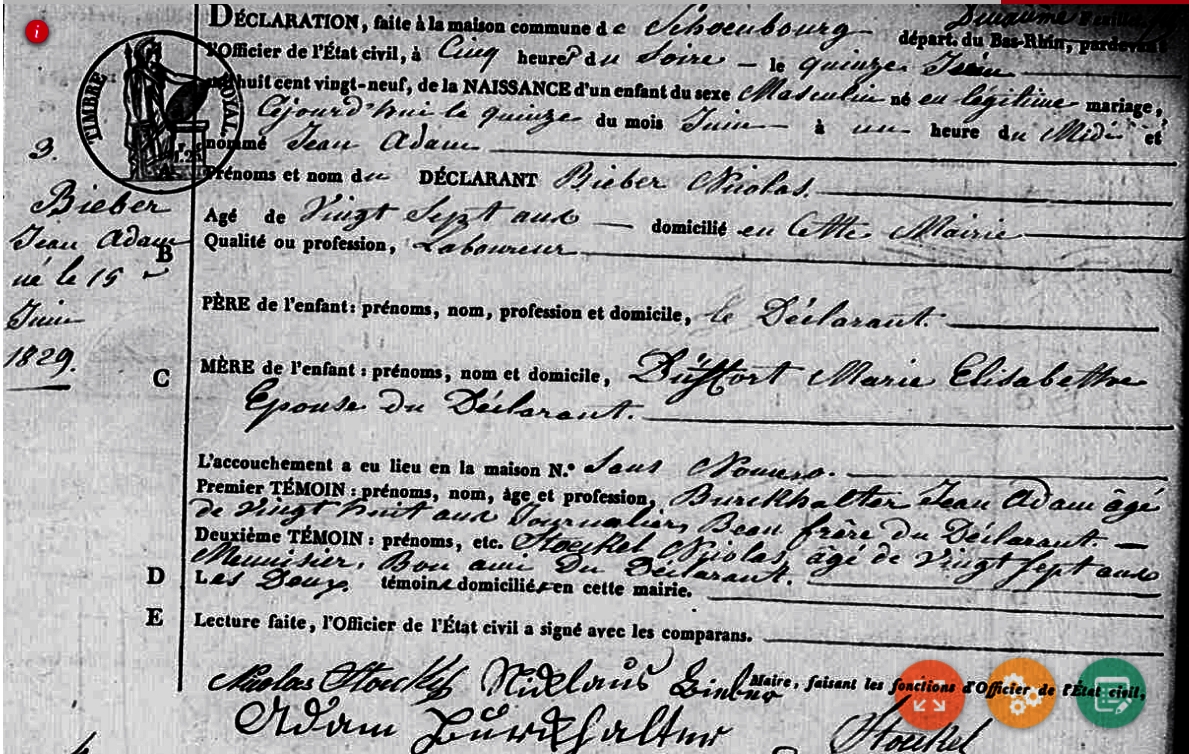 DÉCLARATION, faite à la maison commune de Schoenbourg
départ. du Bas-Rhin, pardevant
l'Officier de l'État civil, à Cinq heures du Soire – le quinze Juin
huit cent vingt-neuf, de la NAISSANCE d'un enfant du sexe Masculin né en légitime mariage,
Cejourd'hui le quinze du mois Juin à un heure du Midi et
nommé Jean Adam
TIMBRE ROYAL
3.
Bieber
Jean Adam
né le 15
Juin
1829.
Prénoms et nom du DÉCLARANT Bieber Nicolas.
Agé de Vingt Sept ans — domicilié en Cette Mairie
B Qualité ou profession, Laboureur
PÈRE de l'enfant: prénoms, nom, profession et domicile, le Déclarant.
C MÈRE de l'enfant: prénoms, nom et domicile, Marie Elisabethe
Epouse du Déclarant.
L'accouchement a eu lieu en la maison N.° Sans Numero.
Premier TÉMOIN: prénoms, nom, âge et profession, Burckhalter Jean Adam âgé
de Vingt huit ans Journalier, Beau frère du Déclarant. —
Deuxième TÉMOIN: prénoms, etc. Stoekel Nicolas, âgé de Vingt Sept ans
Meunisier, Bon ami Du Déclarant.
D Les Deux témoins domiciliés en cette mairie.
E Lecture faite, l'Officier de l'État civil a signé avec les comparans.
Nicolas Stoekel Nicklaus Bieber
Maire, faisant les fonctions d'Officier de l'État civil,
Adam Burckhalter Stoekel